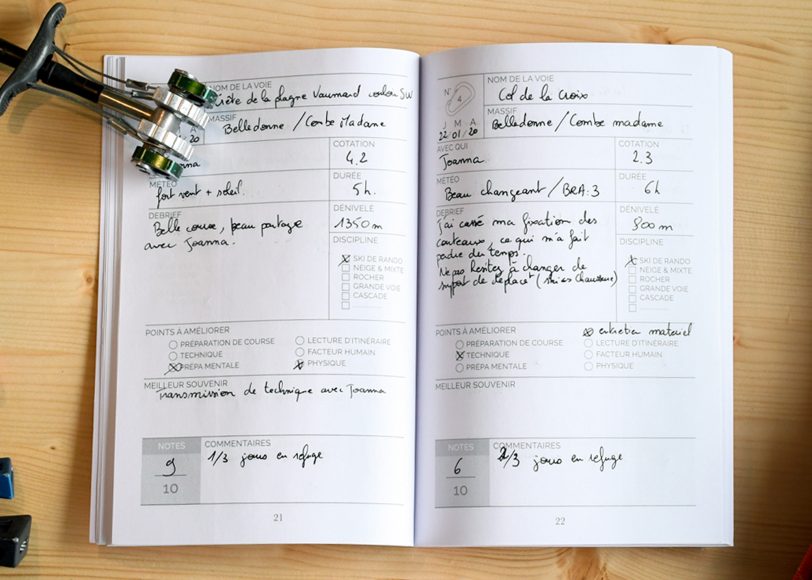 NOM DE LA VOIE
Crête de la plagne Vaumard couloir SW
MASSIF
Belledonne / Combe Madame
A
20
COTATION
4.2
MÉTÉO
fort vent + soleil.
DURÉE
5h.
DÉBRIEF
Belle course, beau partage
avec Joanna.
DÉNIVELÉ
1350m
DISCIPLINE
x SKI DE RANDO
NEIGE & MIXTE
ROCHER
GRANDE VOIE
CASCADE
POINTS À AMÉLIORER
PRÉPARATION DE COURSE
TECHNIQUE
x PRÉPA MENTALE
LECTURE D'ITINÉRAIRE
FACTEUR HUMAIN
x PHYSIQUE
MEILLEUR SOUVENIR
Transmission de technique avec Joanna
NOTES
9
10
COMMENTAIRES
1/3 jours en refuge
21
N°
4
NOM DE LA VOIE
Col de la Croix
J M A
22 01 20
MASSIF
Belledonne / Combe madame
AVEC QUI
Joanna.
COTATION
2.3
MÉTÉO
Beau changeant / BRA:3
DURÉE
6h
DÉBRIEF
J'ai cassé ma fixation des
couteaux, ce qui m'a fait
perdre du temps.
Ne pas hésitez à changer de
support de déplact (skis es chaussures)
DÉNIVELÉ
900m
DISCIPLINE
x SKI DE RANDO
NEIGE & MIXTE
ROCHER
GRANDE VOIE
CASCADE
POINTS À AMÉLIORER
x entretien materiel
PRÉPARATION DE COURSE
x TECHNIQUE
PRÉPA MENTALE
LECTURE D'ITINÉRAIRE
FACTEUR HUMAIN
PHYSIQUE
MEILLEUR SOUVENIR
NOTES
6
10
COMMENTAIRES
2/3 jours en refuge
22